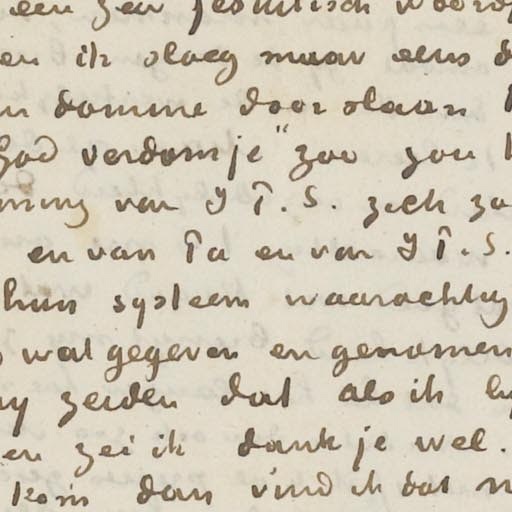 een zeer jesuitisch woord
en ik sloeg maar eens d
n domme doorslaan
God verdomje" zoo zou
ming van J T. S. zich za
en van Pa en van J T. S.
hun systeem waarachtig
wat gegeven en genomen
zeiden dat als ik
en zei ik dank je wel.
kom dan vind ik dat